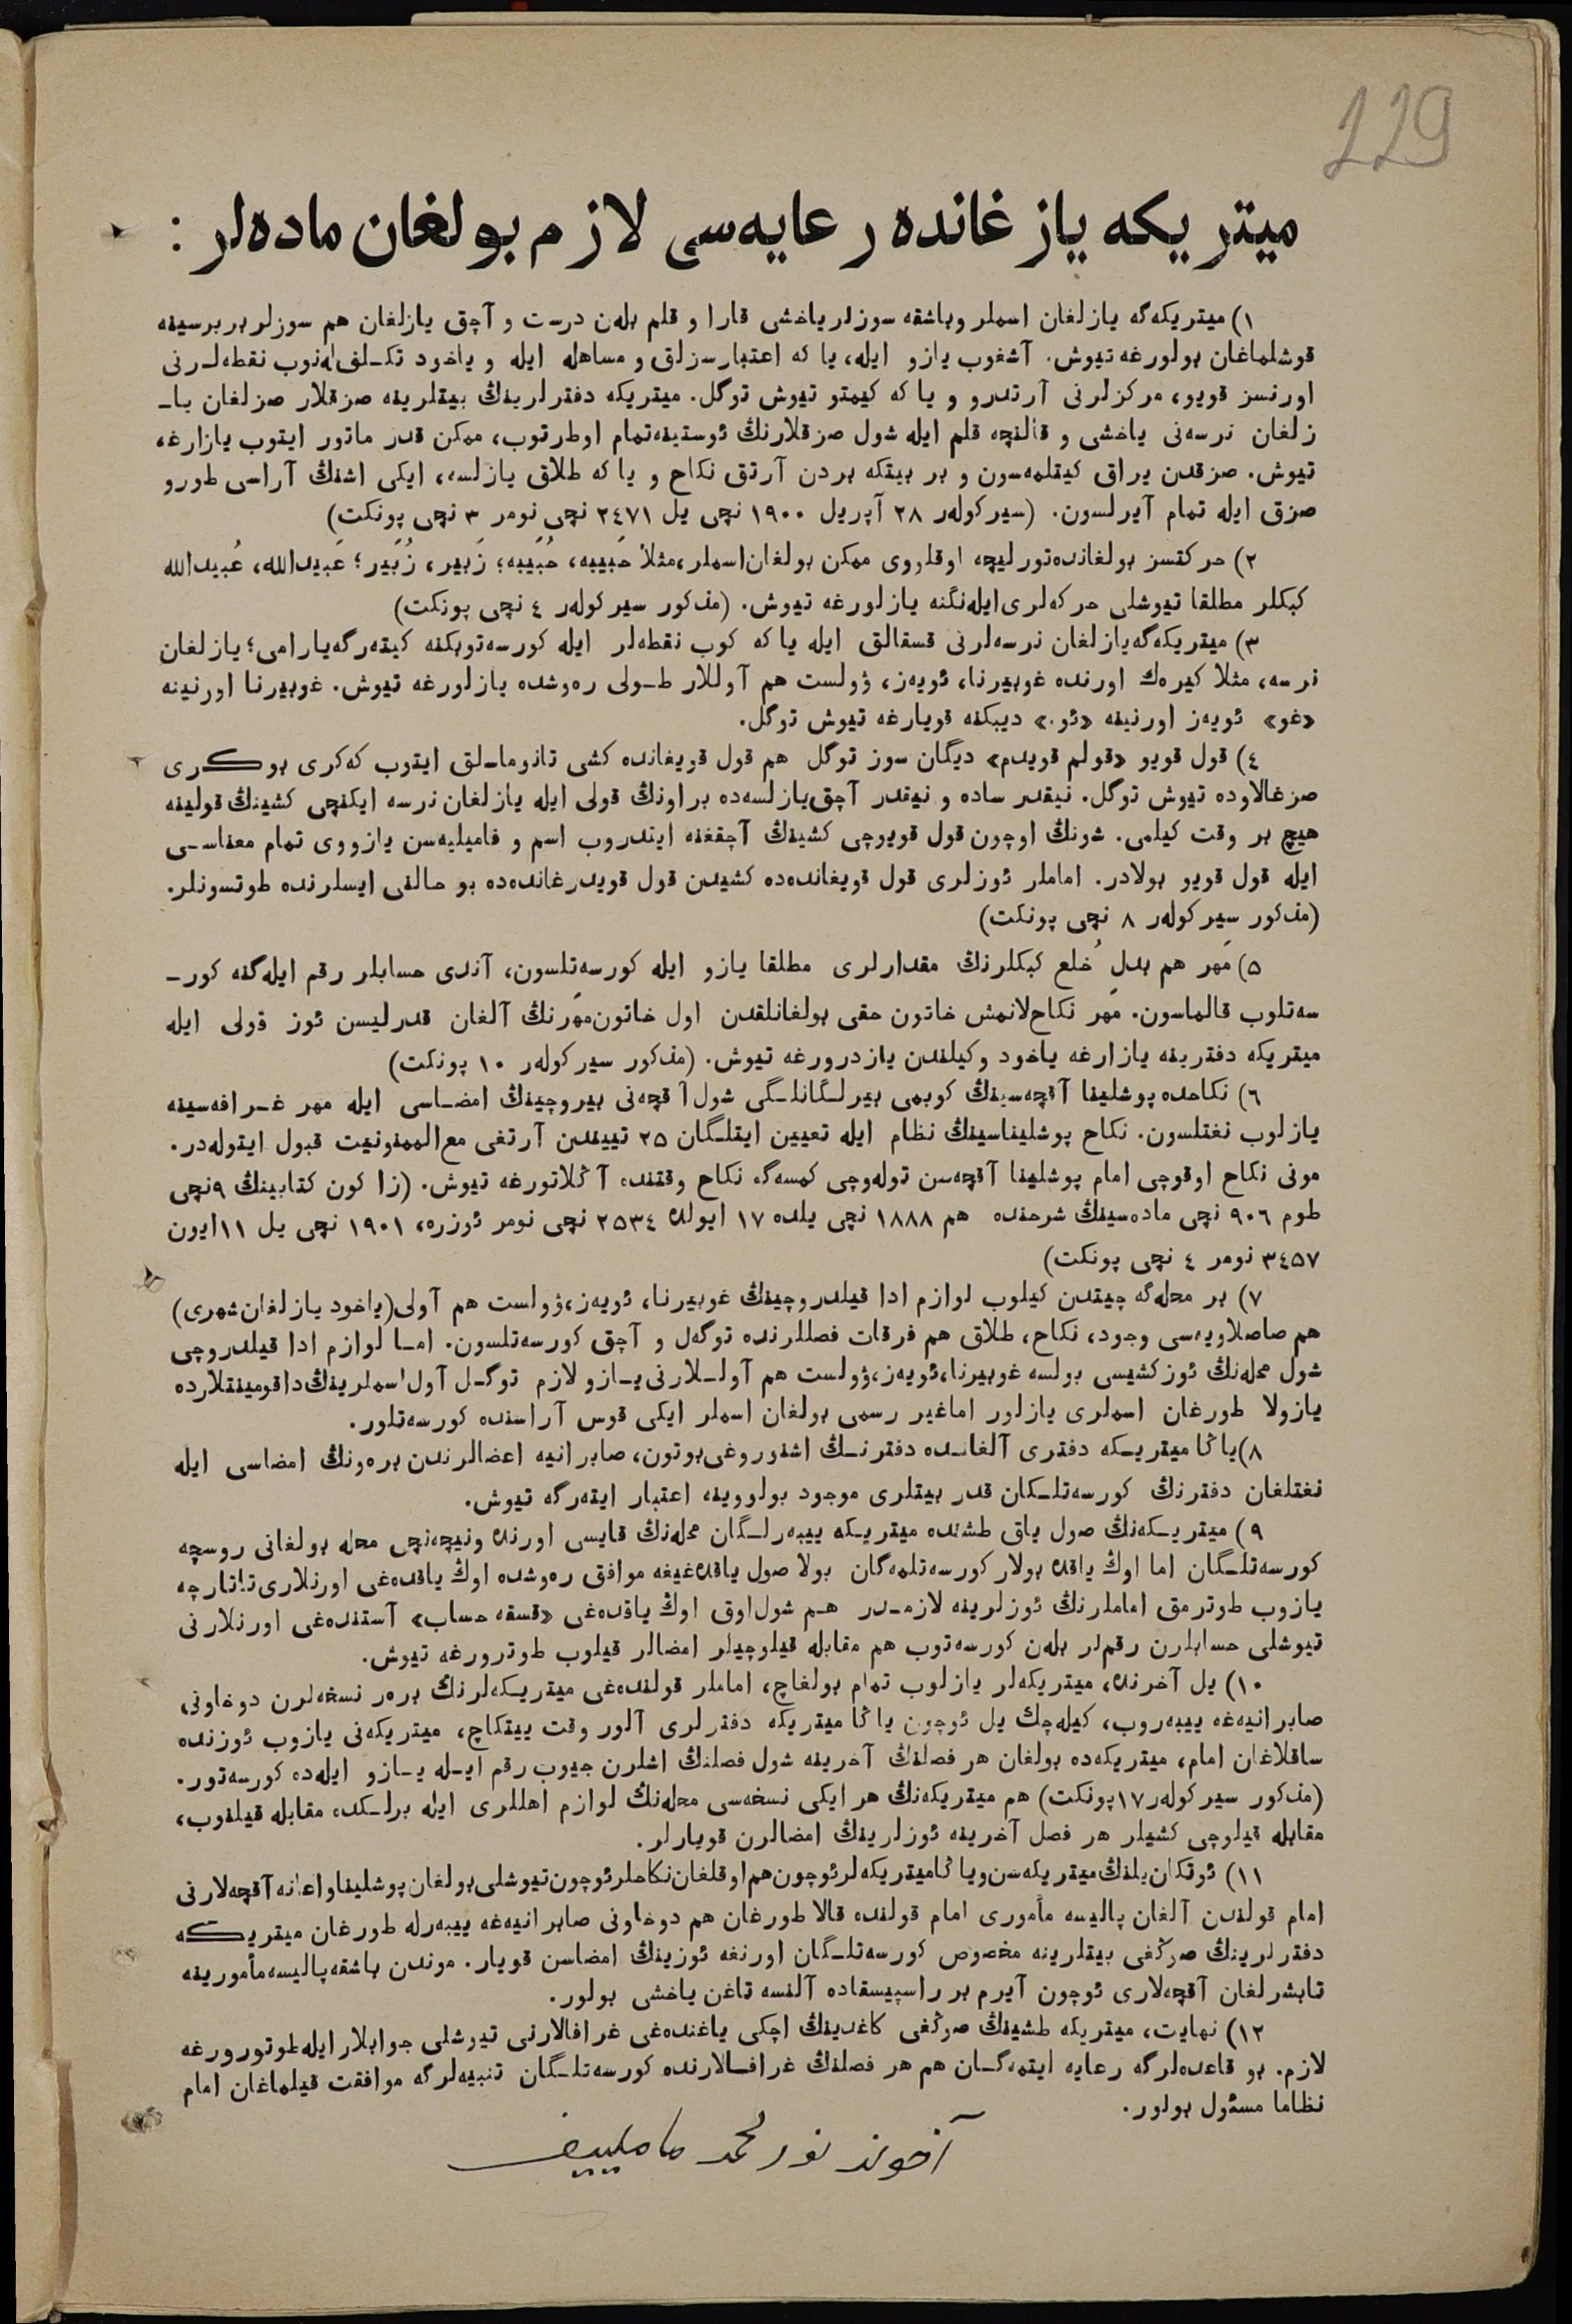 119
ميتريكه يازغانده رعايه‌سى لازم بولغان ماده‌لر :
١) ميتريكه‌گه يازلغان اسملر وباشقه سوزلر ياخشى قارا و قلم بلەن درست و آچق يازلغان هم سوزلر بربرسينه
قوشلماغان بولورغه تيوش. آشغوب يازو ايله، يا كه اعتبارسزلق و مساهله ايله و ياخود تكـلف‌له‌نوب نقطه‌لـرنى
اورنسز قويو، مركزلرنى آرتدرو و يا كه كيمتو تيوش توگل. ميتريكه دفترلرينڭ بيتلرينه صزقلار صزلغان يا۔
زلغان نرسه‌نى ياخشى و قالنچه قلم ايله شول صزقلارنڭ ئوستينه‌تمام اوطرتوب، ممكن قدر ماتور ايتوب يازارغه
تيوش. صزقدن يراق كيتلمه‌سون و بر بيتكه بردن آرتق نكاح و يا كه طلاق يازلسه، ايكى اشنڭ آراسى طورو
صزق ايله تمام آيرلسون. (سيركولەر ٢٨ آپريل ١٩٠٠ نچى يل ٢٤٧١ نچى نومر ٣ نچى پونكت)
٢) حركتسز بولغانده‌تورليچه اوقلووى ممكن بولغان‌اسملر،مثلا حَبيبه، حُبَيبه؛ زَبير، زُبَير؛ عَبيدالله، عُبيدالله
كبكلر مطلقا تيوشلى حركه‌لرى‌ايله‌نگنه يازلورغه تيوش. (مذكور سيركولەر ٤ نچى پونكت)
٣) ميتريكه‌گه‌يازلغان نرسه‌لرنى قسقالق ايله يا كه كوب نقطه‌لر ايله كورسه‌توبكنه كيته‌رگه‌يارامى؛ يازلغان
نرسه، مثلا كيره‌ك اورنده غوبيرنا، ئويه‌ز، ۋولست هم آوللار طـولى ره‌وشده يازلورغه تيوش. غوبيرنا اورنينه
«غو» ئويه‌ز اورنينه «ئو.» ديبكنه قويارغه تيوش توگل.
٤) قول قويو «قولم قويدم» ديگان سوز توگل هم قول قويغانده كشى تانوماـلق ايتوب كه‌كرى بوكـرى
صزغالاوده تيوش توگل. نيقدر ساده و نيقدر آچق‌يازلسه‌ده براونڭ قولى ايله يازلغان نرسه ايكنچى كشينڭ قولينه
هيچ بر وقت كيلمى. شونڭ اوچون قول قويوچى كشينڭ آچقغنه ايتدروب اسم و فاميليه‌سن يازووى تمام معناسـى
ايله قول قويو بولادر. اماملر ئوزلرى قول قويغانده‌ده كشيدن قول قويدرغانده‌ده بو حالنى ايسلرنده طوتسونلر.
(مذكور سيركولەر ٨ نچى پونكت)
٥) مَهر هم بدلِ خُلع كبكلرنڭ مقدارلرى مطلقا يازو ايله كورسه‌تلسون، آندى حسابلر رقم ايله‌گنه كور۔
سه‌تلوب قالماسون. مهر نكاح‌لانمش خاتون حقى بولغانلقدن اول خاتون‌مهرنڭ آلغان قدرليسن ئوز قولى ايله
ميتريكه دفترينه يازارغه ياخود وكيلندن يازدرورغه تيوش. (مذكور سيركولەر ١٠ پونكت)
٦) نكاحده پوشلينا آقچه‌سينڭ كوبمى بيرلـگانلـگى شول‌آقچه‌نى بيروچينڭ امضـاسى ايله مهر غـرافه‌سينه
يازلوب نغتلسون. نكاح پوشليناسينڭ نظام ايله تعيين ايتلـگان ٢٥ تييندن آرتغى مع‌الممنونيت قبول ايتوله‌در.
مونى نكاح اوقوچى امام پوشلينا آقچه‌سن توله‌وچى كمسه‌گه نكاح وقتنده آڭلاتورغه تيوش. (زاكون كتابينڭ ٩نچى
طوم ٩٠٦ نچى ماده‌سينڭ شرحنده هم ١٨٨٨ نچى يلده ١٧ ايولده ٢٥٣٤ نچى نومر ئوزره، ١٩٠١ نچى يل ١١ايون
٣٤٥٧ نومر ٤ نچى پونكت)
٧) بر محله‌گه چيتدن كيلوب لوازم ادا قيلدروچينڭ غوبيرنا، ئويه‌ز،ۋولست هم آولى(ياخود يازلغان‌شهرى)
هم صاصلاويه‌سى وجود، نكاح، طلاق هم فرقات فصللرنده توگه‌ل و آچق كورسه‌تلسون. امـا لوازم ادا قيلدروچى
شول محله‌نڭ ئوزكشيسى بولسه غوبيرنا،ئويه‌ز،ۋولست هم آولـلارنى يـازو لازم توگـل آول‌اسملرينڭ‌داقومينتلارده
يازولا طورغان اسملرى يازلور اماغير رسمى بولغان اسملر ايكى قوس آراسنده كورسه‌تلور.
٨)ياڭا ميتريـكه دفترى آلغانـده دفترنـڭ اشنوروغى‌بوتون، صابرانيه اعضالرندن بره‌ونڭ امضاسى ايله
نغتلغان دفترنڭ كورسه‌تلـكان قدر بيتلرى موجود بولووينه اعتبار ايته‌رگه تيوش.
٩) ميتريـكه‌نڭ صول ياق طشنده ميتريـكه ييبه‌رلـگان محله‌نڭ قايسى اورنده ونيچه‌نچى محله بولغانى روسچه
كورسه‌تلـگان اما اوڭ ياقده بولار كورسه‌تلمه‌گان بولا صول ياقده‌غيغه موافق ره‌وشده اوڭ ياقده‌غى اورنلارى‌تاتارچه
يازوب طوترمق اماملرنڭ ئوزلرينه لازمـدر هـم شول‌اوق اوڭ ياقده‌غى «قسقه حساب» آستنده‌غى اورنلارنى
تيوشلى حسابلرن رقملر بلەن كورسه‌توب هم مقابله قيلوچيلر امضالر قيلوب طوترورغه تيوش.
١٠) يل آخرنده، ميتريكه‌لر يازلوب تمام بولغاچ، اماملر قولنده‌غى ميتريـكه‌لرنڭ بره‌ر نسخه‌لرن دوخاونى
صابرانيه‌غه ييبه‌روب، كيله‌چك يل ئوچون ياڭا ميتريكه دفترلرى آلور وقت ييتكاچ، ميتريكه‌نى يازوب ئوزنده
ساقلاغان امام، ميتريكه‌ده بولغان هر فصلنڭ آخرينه شول فصلنڭ اشلرن جيوب رقم ايـله يـازو ايله‌ده كورسه‌تور.
(مذكور سيركولەر١٧پونكت) هم ميتريكه‌نڭ هر ايكى نسخه‌سى محله‌نڭ لوازم اهللرى ايله برلـكده مقابله قيلنوب،
مقابله قيلوچى كشيلر هر فصل آخرينه ئوزلرينڭ امضالرن قويارلر.
١١) ئوتكان‌يلنڭ‌ميتريكه‌سن‌وياڭاميتريكه‌لرئوچون‌هم‌اوقلغان‌نكاحلرئوچون‌تيوشلى‌بولغان‌پوشليناواعانه‌آقچه‌لارنى
امام قولندن آلغان پاليسه مأمورى امام قولنده قالا طورغان هم دوخاونى صابرانيه‌غه ييبه‌رله طورغان ميتريـكه
دفترلرينڭ صوڭغى بيتلرينه مخصوص كورسه‌تلـگان اورنغه ئوزينڭ امضاسن قويار. موندن باشقه‌پاليسه‌مأمورينه
تابشرلغان آقچه‌لارى ئوچون آيرم بر راسپيسقاده آلنسه تاغن ياخشى بولور.
١٢) نهايت، ميتريكه طشينڭ صوڭغى كاغدينڭ اچكى ياغنده‌غى غرافالارنى تيوشلى جوابلار ايله‌طوتورورغه
لازم. بو قاعده‌لرگه رعايه ايتمه‌گـان هم هر فصلنڭ غرافـالارنده كورسه‌تلـگان تنبيه‌لرگه موافقت قيلماغان امام
نظاما مسئول بولور.
آخوند نورمحمد مامليييف